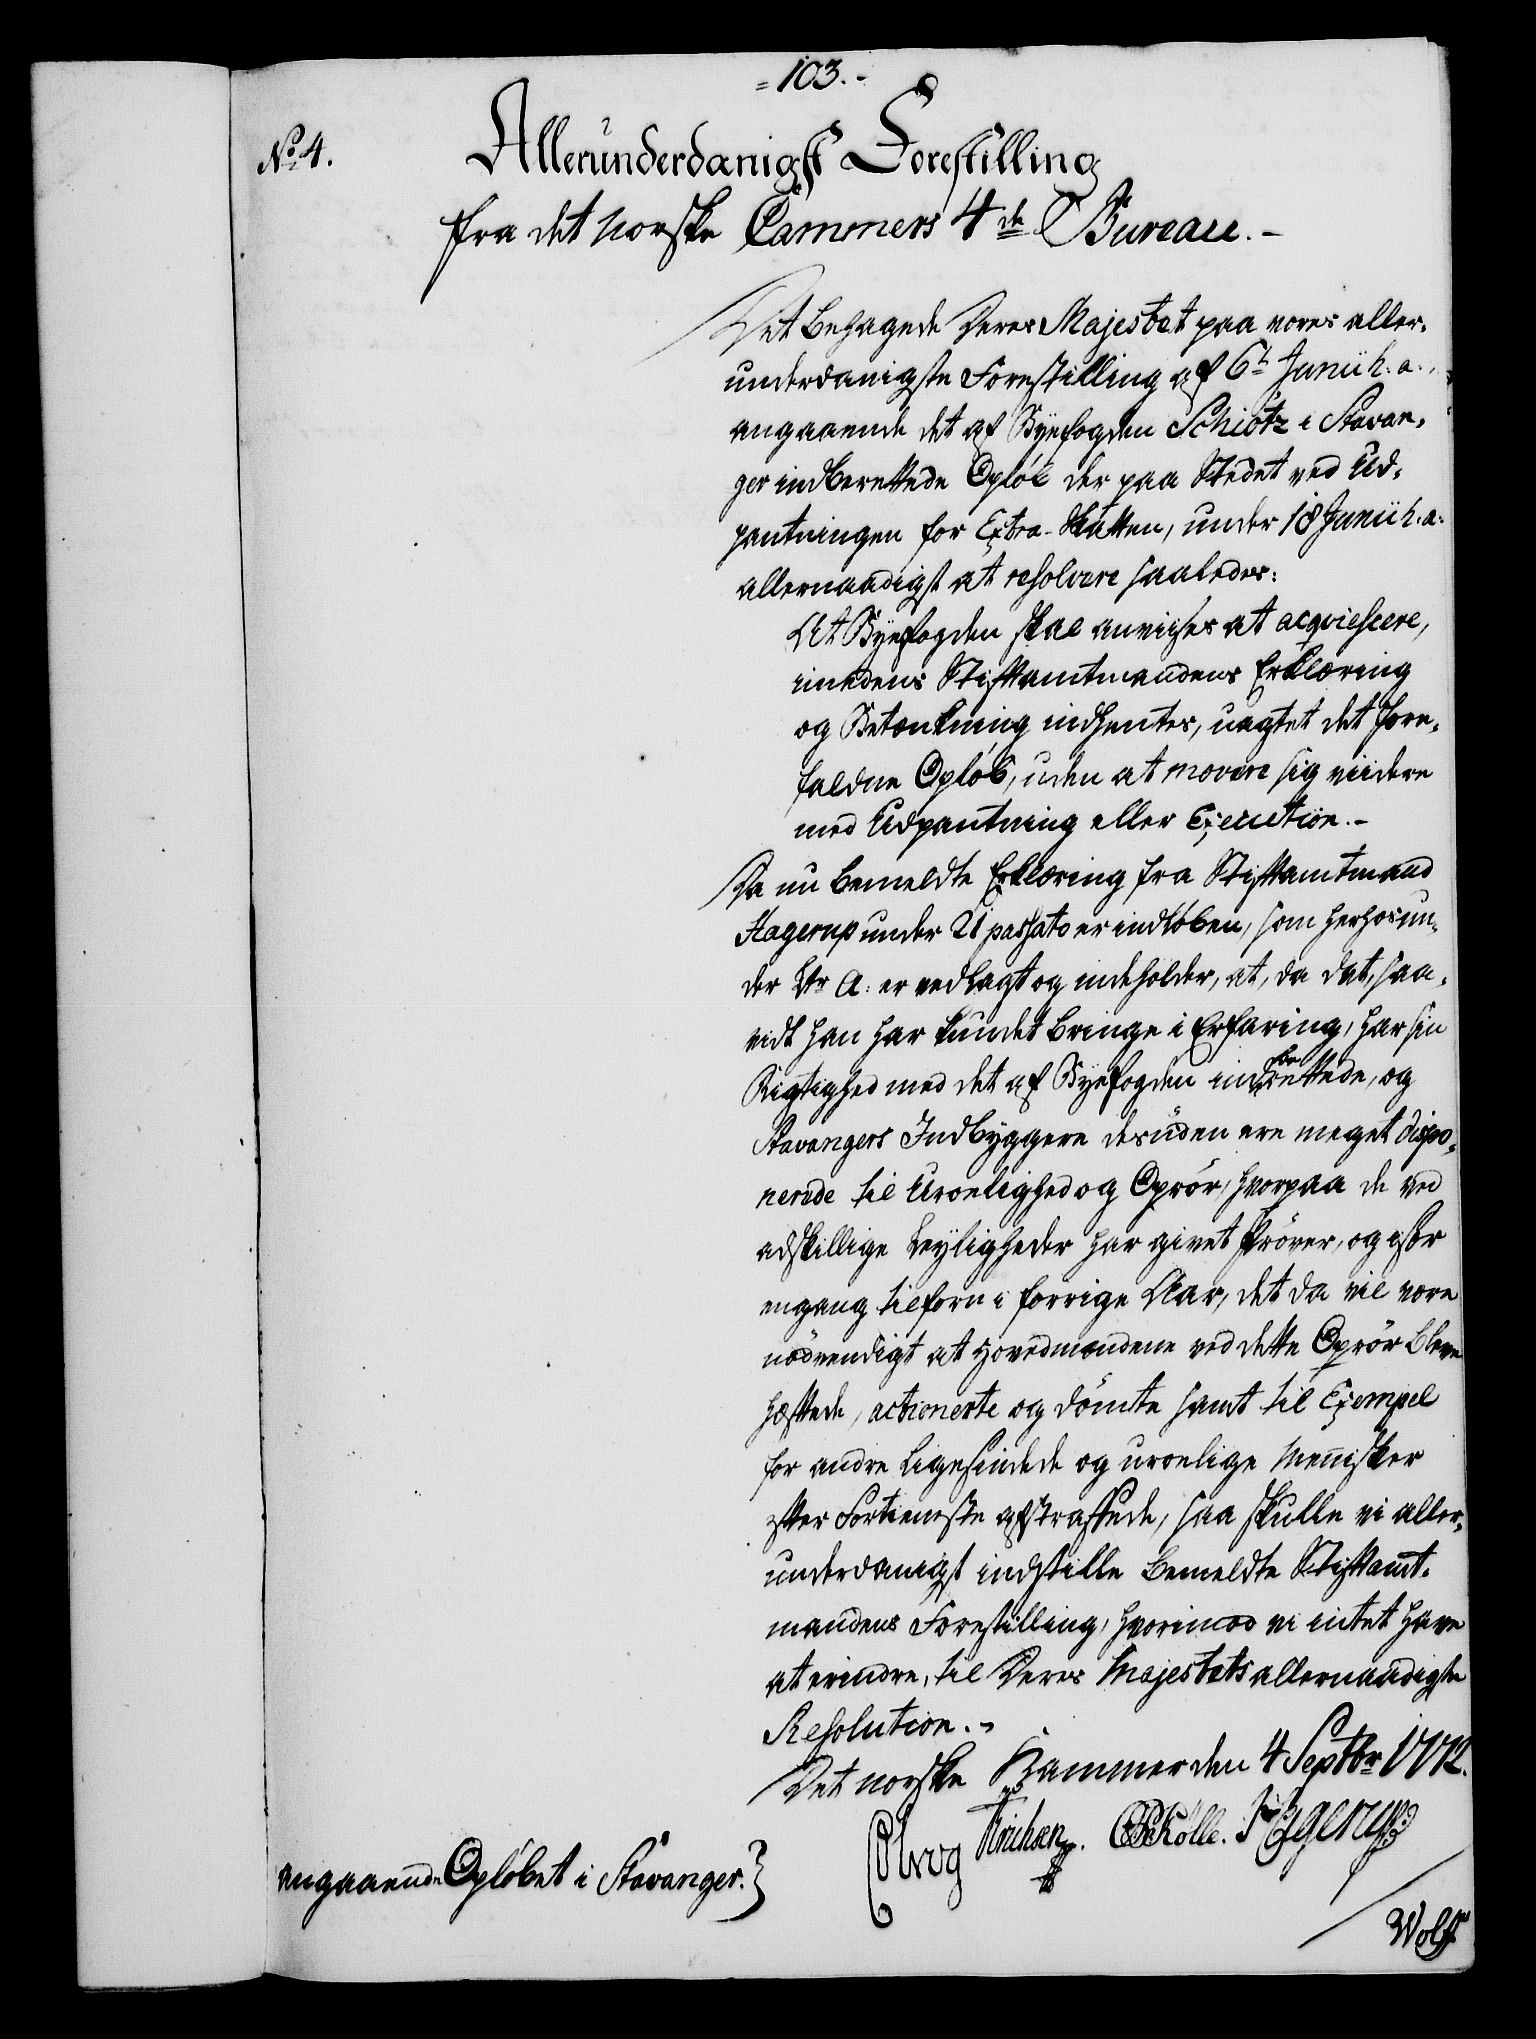 = 103. -
No. 4.
Allerunderdanigst Forestilling
fra det norske Cammers 4de Bureau. -
Det behagede Deres Majestæt paa vores aller-
underdanigste Forestilling af 6t Junii h. a.,
angaaende det af Byefogden Schiötz i Stavan-
ger indberettede Opløb der paa Stedet ved Ud-
pantningen for Extra-Skatten, under 18 Junii h. a.
allernaadigst at resolvere saaledes:
At Byefogden skal anvises at acqviescere,
imedens Stiftamtmandens Erklæring
og Betænkning indhentes, uagtet det fore-
faldne Opløb, uden at movere sig viidere
med Udpantning eller Execution. -
Da nu bemeldte Erklæring fra Stiftamtmand
Hagerup under 21 passato er indløben, som herhos un-
der Ltr A: er vedlagt og indeholder, at, da det, saa-
vidt han har kundet bringe i Erfaring, har sin
Rigtighed med det af Byefogden indberettede, og
Stavangers Indbyggere desuden ere meget dispo-
nerede til Uroelighed og Oprør, hvorpaa de ved
adskillige Leyligheder har givet Prøver, og især
engang tilforn i forrige Aar, det da vil være
nødvendigt at Hovedmændene ved dette Oprør bleve
hæftede, actionerte og dømte samt til Exempel
for andre ligesindede og uroelige Mennisker
efter Fortieneste afstraffede, saa skulle vi aller-
underdanigst indstille bemeldte Stiftamt-
mandens Forestilling, hvorimod vi intet have
at erindre, til Deres Majestæts allernaadigste
Resolution. -
Det norske Kammer den 4 Septbr 1772.
Holle. Hagerup
angaaende Opløbet i Stavanger.
Wolff